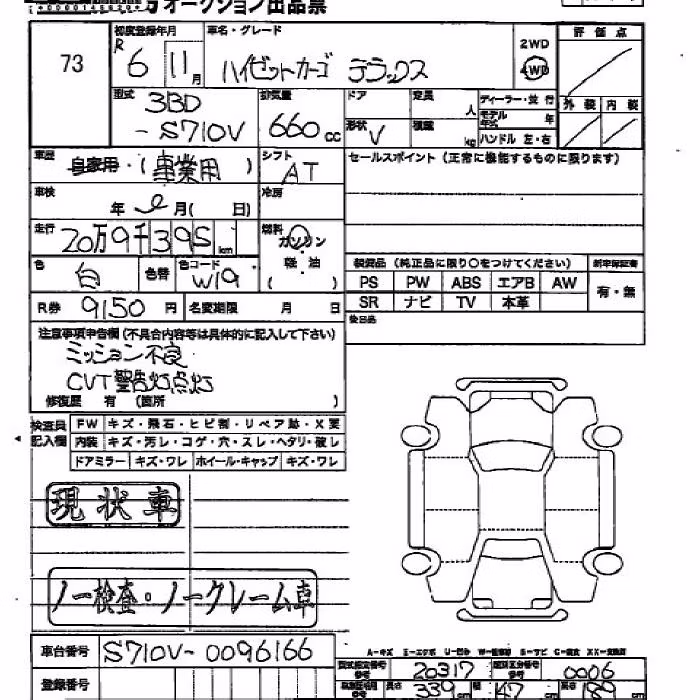 オークション出品票
73
初度登録年月
R 6 11月
車名・グレード
ハイゼットカーゴ デラックス
2WD
4WD
評価点
外装 内装
型式
3BD
-S710V
排気量
660cc
ドア
定員
人
形状
V
積載
kg
ディーラー・並行
モデル年式 年
ハンドル 左・右
車歴
自家用・(事業用)
シフト
AT
セールスポイント(正常に機能するものに限ります)
車検
年 月( 日)
冷房
走行
20万9千395km
燃料
ガソリン
軽・油
( )
色
白
色替
色コード
W19
装備品(純正品に限り○をつけてください)
新車保証書
PS PW ABS エアB AW
SR ナビ TV 本革
有・無
R券 9150円
名変期限 月 日
後日品
注意事項申告欄(不具合内容等は具体的に記入して下さい)
ミッション不良
CVT警告灯点灯
修復歴 有 (箇所 )
検査員記入欄
FW キズ・飛石・ヒビ割・リペア跡・X要
内装 キズ・汚レ・コゲ・穴・スレ・ヘタリ・破レ
ドアミラー キズ・ワレ ホイール・キャップ キズ・ワレ
現状車
ノー検査・ノークレーム車
車台番号 S710V-0096166
登録番号
A-キズ E-エクボ U-凹み W-補修跡 S-サビ C-腐食 XX-交換済
型式指定番号 20317
類別区分番号 0006
長さ 339cm 幅 147 高さ 189cm